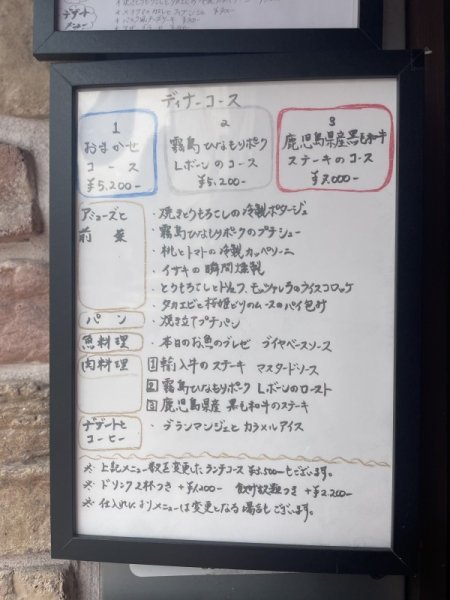 ディナーコース
1
おまかせ
コース
¥5,200-
2
霧島ひなもりポーク
Lボーンのコース
¥5,200-
3
鹿児島県産黒毛和牛
ステーキのコース
¥7,000-
アミューズと
前菜
・焼きとうもろこしの冷製ポタージュ
・霧島ひなもりポークのプチシュー
・桃とトマトの冷製カッペリーニ
・イサキの瞬間燻製
・とうもろこしとトリュフ、モッツァレラのライスコロッケ
・タカエビと桜姫どりのムースのパイ包み
パン
・焼き立てプチパン
魚料理
・本日のお魚のブレゼ ブイヤベースソース
肉料理
1 輸入牛のステーキ マスタードソース
2 霧島ひなもりポーク Lボーンのロースト
3 鹿児島県産 黒毛和牛のステーキ
デザートと
コーヒー
・ブランマンジェとカラメルアイス
※ 上記メニュー数を変更したランチコース ¥3,500-もございます。
※ ドリンク2杯つき +¥1,200- 飲み放題つき +¥2,200-
※ 仕入れによりメニューは変更となる場合もございます。